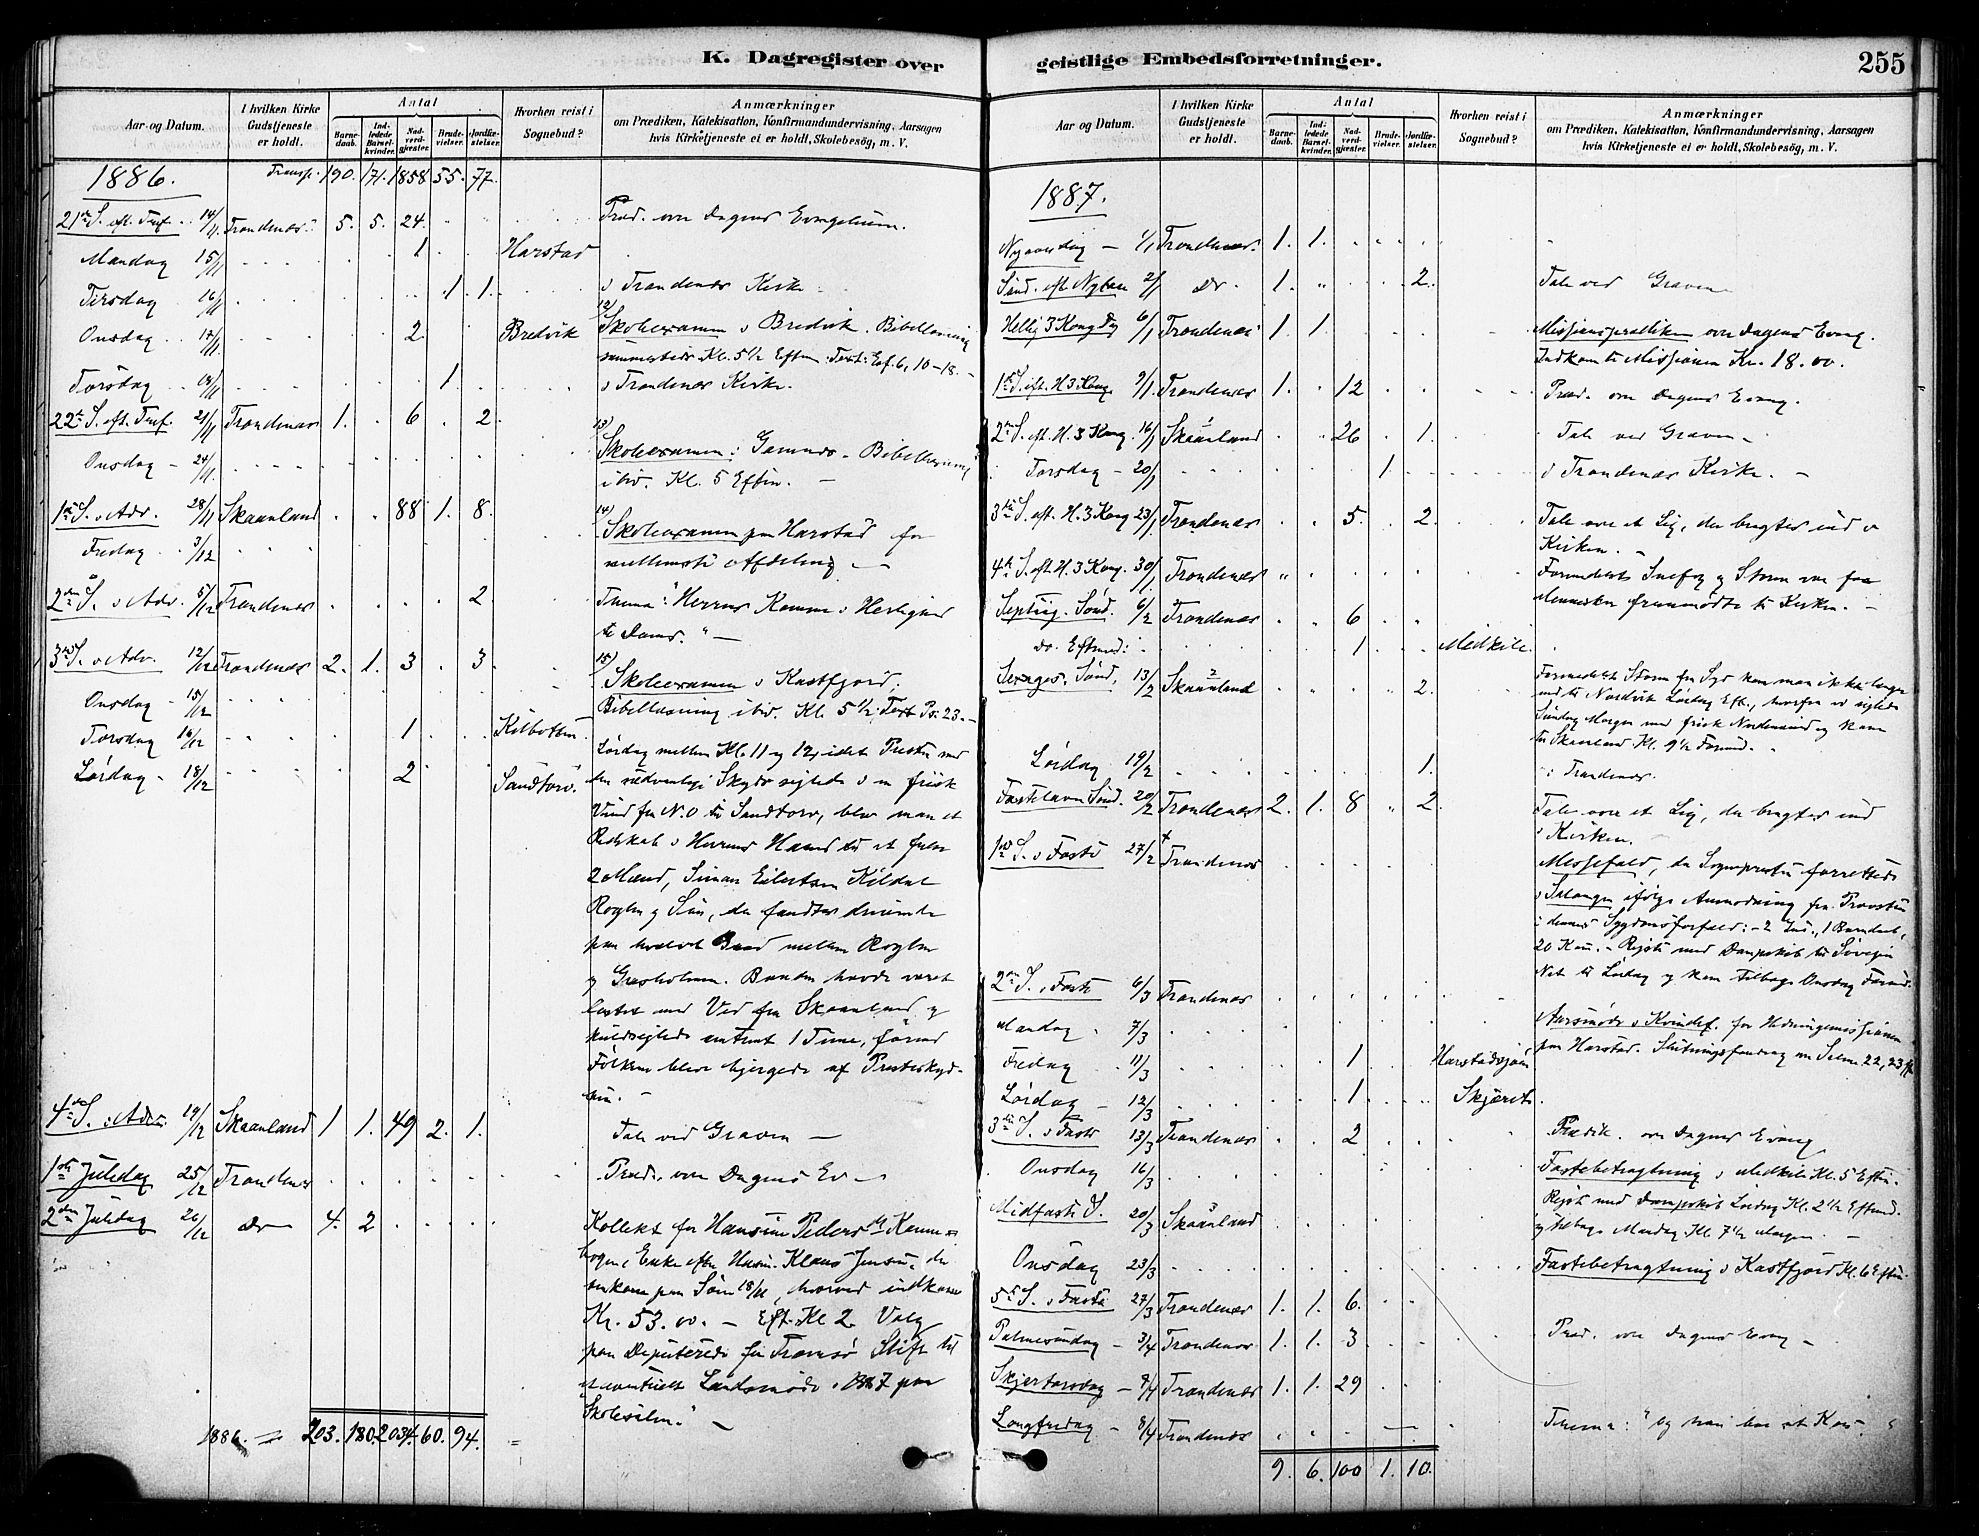 K. Dagregister over
geistlige Embedsforretninger.
255
Aar og Datum.
I hvilken Kirke Gudstjeneste er holdt.
Antal
Barne-daab.
Ind-ledede Barsel-kvinder.
Nad-verd-gjæster.
Brude-vielser.
Jordfæ-stelser.
Hvorhen reist i Sognebud?
Anmærkninger
om Prædiken, Katekisation, Konfirmandundervisning, Aarsagen
hvis Kirketjeneste ei er holdt, Skolebesøg, m. V.
1886. Transp. 190. 171. 1858 55. 77.
21de S. eft. Tref. 14/11 Trondenæs 5. 5. 24. Præd. over Dagens Evangelium.
Mandag 15/11 1 Harstad
Tirsdag 16/11 1. 1. i Trondenæs Kirke
Onsdag 17/11 2. Bredvik 12) Skoleexamen i Bredvik. Bibellæsning
sammesteds Kl. 5 1/2 Eftm. Text: Ef. 6, 10-18.
Torsdag 18/11 1. i Trondenæs Kirke.
22de S. eft. Tref. 21/11 Trondenæs 1. 6 2.
Onsdag 24/11 13) Skoleexamen i Gamnes. Bibellæsning
ibid. Kl. 5 Eftm.
1ste S. i Adv. 28/11 Skaanland 88 1. 8.
Fredag 3/12 14) Skoleexamen paa Harstad for
mellemste Afdeling
2den S. i Adv. 5/12 Trondenæs 2. Thema: "Herrens Komme i Herlighed
til Doms."
3die S. i Adv. 12/12 Trondenæs 2. 1. 3 3
Onsdag 15/12 15) Skoleexamen i Kastfjord.
Bibellæsning ibid. Kl. 5 1/2. Text Ps. 23.
Torsdag 16/12 1. Kilbotten
Lørdag 18/12 2 Sandtorv. Lørdag mellem Kl. 11 og 12, idet Presten med
den sædvanlige Skyds seilede i en frisk
Vind fra N.O. til Sandtorv, blev man et
Redskab i Herrens Haand til at frelse
2 Mænd, Simon Eilertsen Kildal
Roglen og Søn, der fandtes drivende
paa hvælvet Baad mellem Roglen
og Græsholmen. Baaden havde været
lastet med Ved fra Skaanland og
kuldseilede omtrent 1 Time, førend
Folkene bleve bjergede af Presteskyd-
sen.
4de S. i Adv. 19/12 Skaanland 1 1. 49 2. 1. Tale ved Graven
1ste Juledag 25/12 Trondenæs Præd. over Dagens Ev.
2den Juledag 26/12 Do 4. 2 Kollekt for Hansine Pedersdtr Kamme
Enke efter Husm. Klaus Jensen, der
omkom paa Søen 18/11, hvorved indkom
Kr. 53.00. Eft. Kl 2. Valg
paa Deputerede for Tromsø Stift til
et eventuelt Landsmøde i 1887 paa
Skolesalen.
1886 203. 180. 2034. 60. 94.
Aar og Datum.
I hvilken Kirke Gudstjeneste er holdt.
Antal
Barne-daab.
Ind-ledede Barsel-kvinder.
Nad-verd-gjæster.
Brude-vielser.
Jordfæ-stelser.
Hvorhen reist i Sognebud?
Anmærkninger
om Prædiken, Katekisation, Konfirmandundervisning, Aarsagen
hvis Kirketjeneste ei er holdt, Skolebesøg, m. V.
1887.
Nyaarsdag 1/1 Trondenæs 1. 1.
Sønd. eft. Nytaar 2/1 Do 1. 2. Tale ved Graven
Hellig 3 Kong. Dg 6/1 Trondenæs 1. 1 Missionsprædiken over Dagens Evang.
Indkom til Missionen Kr. 18.00.
1ste S. eft. H. 3 Kong. 9/1 Trondenæs 1. 12 Præd. over Dagens Evang.
2den S. eft. H. 3 Kong. 16/1 Skaanland 26 1. Tale ved Graven
Torsdag 20/1 1. i Trondenæs Kirke.
3die S. eft. H. 3 Kong 23/1 Trondenæs 5. 2. Tale over et Lig, der bragtes ind i
Kirken.
4de S. eft. H. 3 Kong. 30/1 Trondenæs Formedelst Snefog og Storm var faa
Mennesker fremmødte til Kirken.
Septuag. Sønd. 6/2 Trondenæs 6
do. Eftmd: 1 Medkile.
Sexages. Sønd. 13/2 Skaanland 2. Formedelst Storm fra Syd kom man ikke længer
end til Nordvik Lørdag Eft., hvorfra vi seilede
Søndag Morgen med frisk Nordenvind og kom
til Skaanland Kl. 9 1/2 Formd.
Lørdag 19/2 1. i Trondenæs.
Fastelavns Sønd. 20/2 Trondenæs 2. 1. 8 2 Tale over et Lig, der bragtes ind
i Kirken.
1ste S. i Faste 27/2 Trondenæs Messefald, da Sognepresten forrettede
i Salangen ifølge Anmodning fra Provsten
i dennes Sygdomsforfald: 1 Barnedaab,
20 Kom. Reiste med Dampskib til Søveien
Nat til Lørdag og kom tilbage Onsdag Formd.
2den S. i Faste 6/3 Trondenæs
Mandag 7/3 Aarsmøde i Kvindef. for Hedningemissionen
paa Harstad. Slutningsforedrag om Salme 22, 23
Fredag 11/3 1 Harstadsjøen
Lørdag 12/3 1. Skjæret
3die S. i Faste 13/3 Trondenæs 2 Prædik. over Dagens Evang
Onsdag 16/3 Fastebetragtning i Medkile Kl. 5 Eftm.
Midfaste S. 20/3 Skaanland Reiste med Dampskib Lørdag Kl. 2 1/2 Eftmd.
og tilbage Mandag Kl. 7 1/2 Morgen.
Onsdag 23/3 Fastebetragtning i Kastfjord Kl. 6 Eftm.
5te S. i Faste 27/3 Trondenæs 1. 1. 6.
Palmesøndag 3/4 Trondenæs 1. 1. 3 Præd. over Dagens Evang
Skjertorsdag 7/4 Trondenæs 1. 1. 29
Langfredag 8/4 Trondenæs Thema:
9. 6. 100 1. 10.